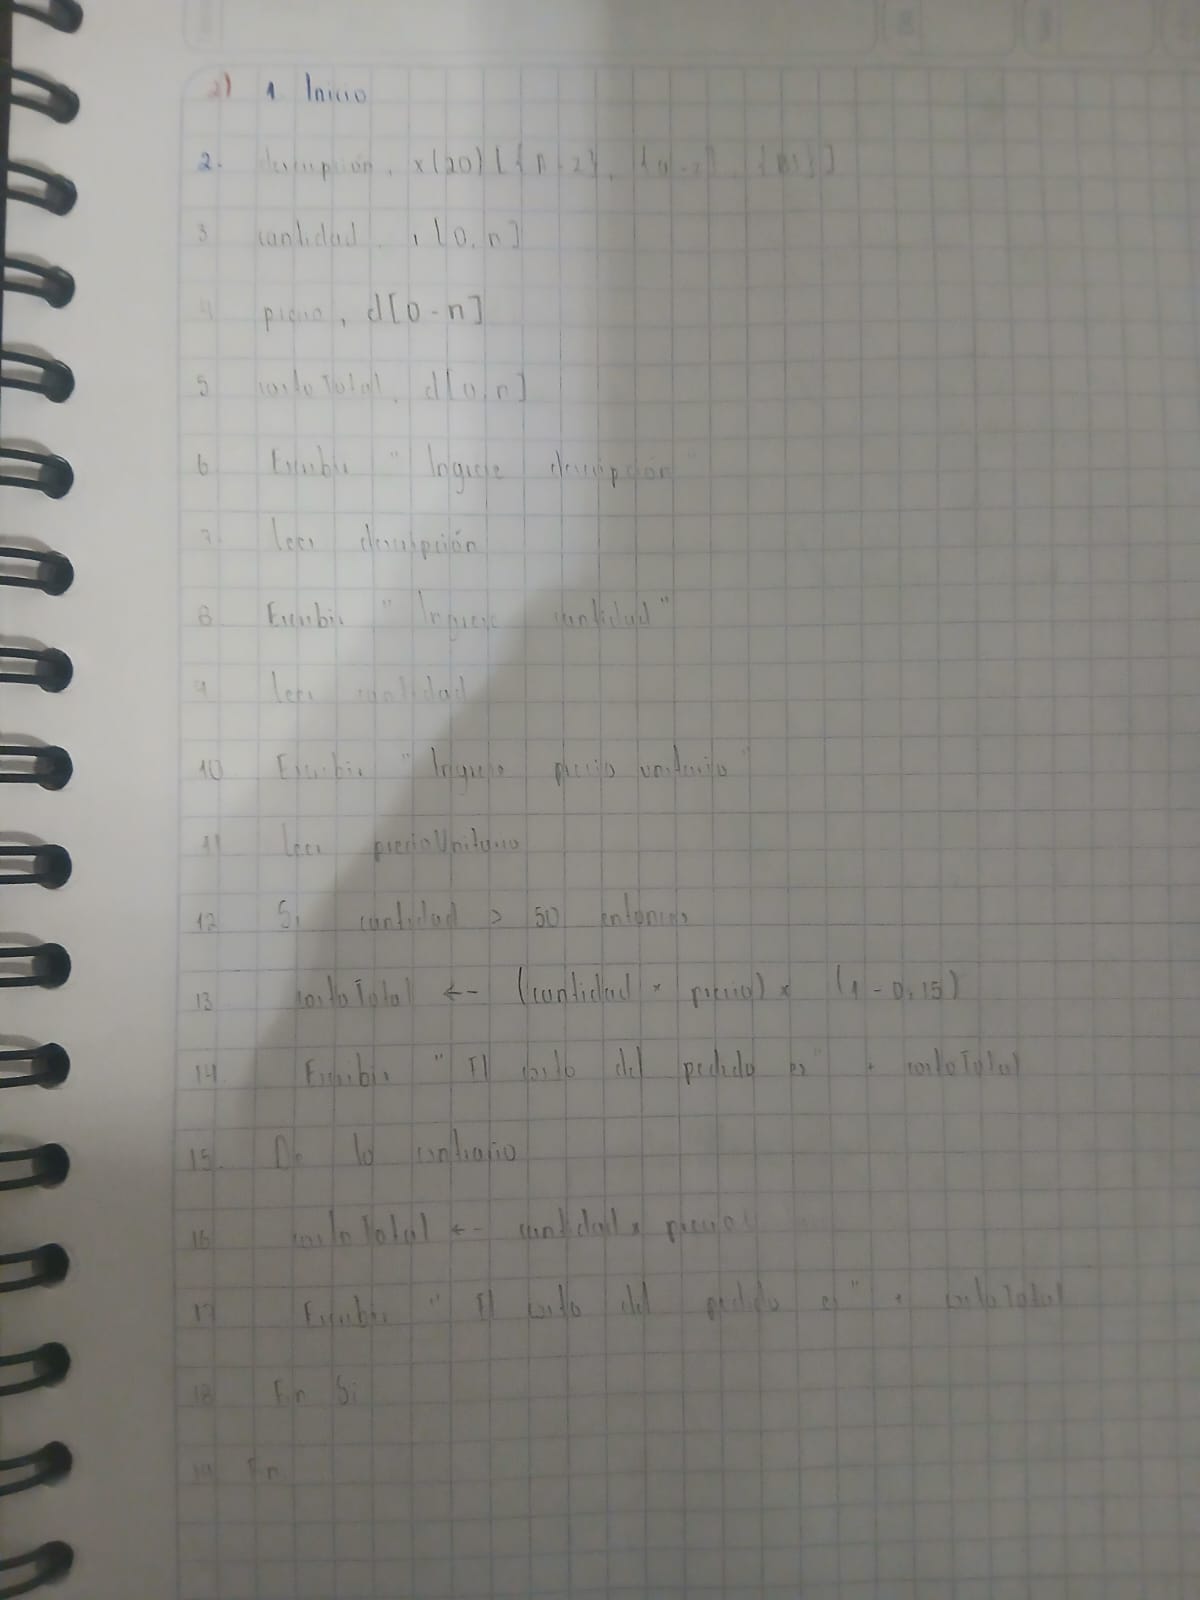 2) 1. Inicio
2. descripción, x(20) [{A-Z}, {a-z},
3 cantidad, i [0, n]
4 precio, d[0-n]
5 costoTotal, d[0, n]
6 Escribir "Ingrese descripción"
7. Leer descripción
8 Escribir "Ingrese cantidad"
9 Leer cantidad
10 Escribir "Ingrese precio unitario"
11 Leer precioUnitario
12 Si cantidad > 50 entonces
13 costoTotal <-- (cantidad * precio) x (1 - 0,15)
14 Escribir "El costo del pedido es" + costoTotal
15. De lo contrario
16 costoTotal <-- cantidad x precio
17 Escribir "El costo del pedido es" + costoTotal
18 Fin Si
19 Fin